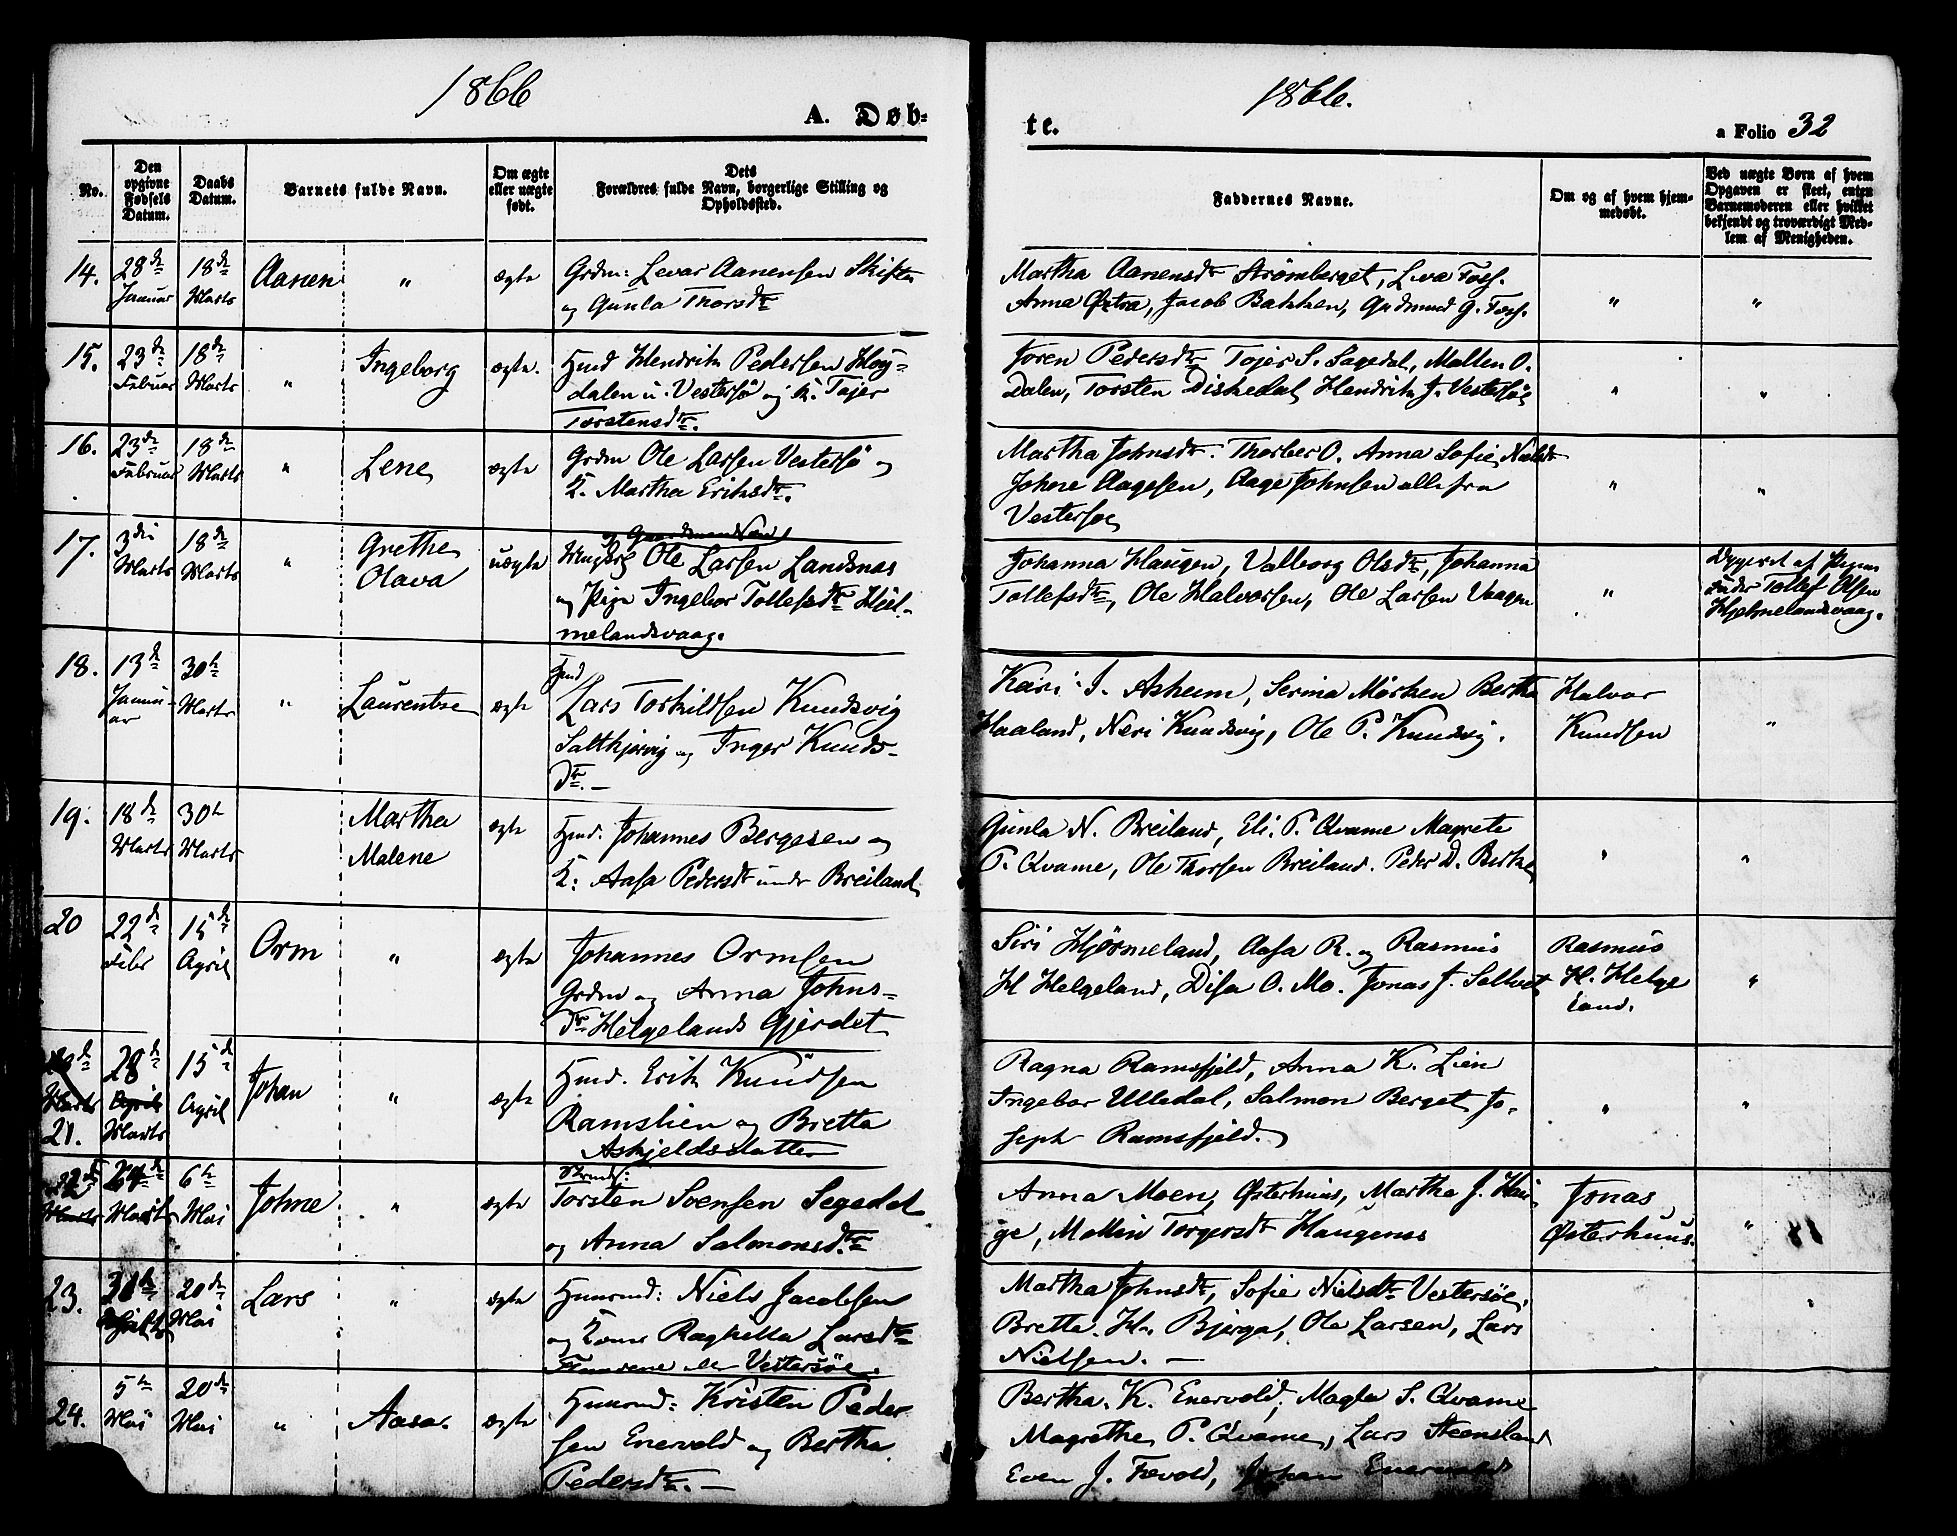 1866
A. Døb-
No.
Den opgivne Fødsels Datum.
Daabs Datum.
Barnets fulde Navn.
Om ægte eller uægte født.
Dets
Forældres fulde Navn, borgerlige Stilling og
Opholdssted.
1866.
te.
a Folio 32
Faddernes Navne.
Om og af hvem hjem-
medøbt.
Ved uægte Børn af hvem
Opgaven er skeet, enten
Barnemoderen eller hvilket
bekjendt og troværdigt Med-
lem af Menigheden.
14. 28de Januar 18de Marts Aanen " ægte
Grdm: Levar Aanensen Skifte
og Gunla Thorsdtr
Martha Aanensdtr Strømberget, Leva
Anna Østra, Jacob Bakken, Gudmund G. " "
15. 23de Februar 18de Marts " Ingeborg ægte.
Hmd Hendrik Pedersen Høy-
dalen u. Vestersø og K. Tajer
Torstensdtr.
Joren Pedersdtr Tojer S. Sagedal, Mallen O.
Dalen, Torsten Diskedal Hendrik J. Vestersøe " "
16. 23de Februar 18de Marts " Lene ægte
Grdm Ole Larsen Vestersø og
K. Martha Eriksdtr.
Martha Johnsdtr. Thorber O. Anna Sofie Nielsdtr
Johne Aagesen, Aage Johnsen alle fra
Vestersøe " "
17. 3die Marts 18de Marts " Grethe Olava uægte
Ungkrl Ole Larsen Landsnæs
og Pige Ingebor Tollefsdtr Hjel-
melandsvaag.
Johanna Haugen, Valborg Olsdtr, Johanna
Tollefsdtr, Ole Halvorsen, Ole Larsen Vaagen "
Opgivet af Pigens
Fader Tollef Olsen
Hjelmelandsvaag.
18. 13de Januar 30te Marts " Laurentse ægte
Hmd
Lars Torkildsen Kundsvig
Saltkjervig og Inger Knuds-
Dtr. —
Kari J. Asheim, Serina Mørken Bertha
Haaland, Neri Kundsvig, Ole P. Kundsvig.
Halvor
Knudsen "
19. 18de Marts 30te Marts Martha Malene ægte
Hmd. Johannes Bergesen og
K: Aasa Pedersdtr under Breiland
Gunla N. Breiland, Eli P. Qvame Magrete
P. Qvame, Ole Thorsen Breiland. Peder D. " "
20 22de Febr 15de April Orm " ægte
Johannes Ormsen
Grdm og Anna Johns-
Dtr Helgelands Gjerdet
Siri Hjørmeland, Aasa R. og Rasmus
H Helgeland, Disa O. Mo. Jonas J.
Rasmus
H. Helge
land. "
21. 28de Marts 15de April Johan " ægte
Hmd. Erik Knudsen
Ramslien og Bretta
Askjeldsdatter
Ragna Ramsfjeld, Anna K. Lien
Ingebor Ulledal, Salmon Berget, Jo-
seph Ramsfjeld. " "
22 24de Marts 6te Mai Johne " ægte
Torsten Svensen Segedal
og Anna Salmonsdtr
Anna Moen, Østerhuus, Martha J. Hau-
ge, Mallin Torgersdtr Haugenes
Jonas
Østerhuus. "
23. 20de Mai Lars " ægte
Huusmd: Niels Jacobsen
og Kone Raghella Larsdtr
Vestersøe.
Martha Johnsdtr, Sofie Nielsdtr Vestersøe,
Bretta H. Bjerga, Ole Larsen, Lars
Nielsen. —
24. 5te Mai 20de Mai " Aasa. ægte
Huusmd: Kristen Peder
sen Enervold og Bertha
Pedersdtr. —
Bertha K. Enervold, Magla S. Qvame
Magrethe P. Qvame, Lars Steensland
Even J. Fævold, Johan Enervold